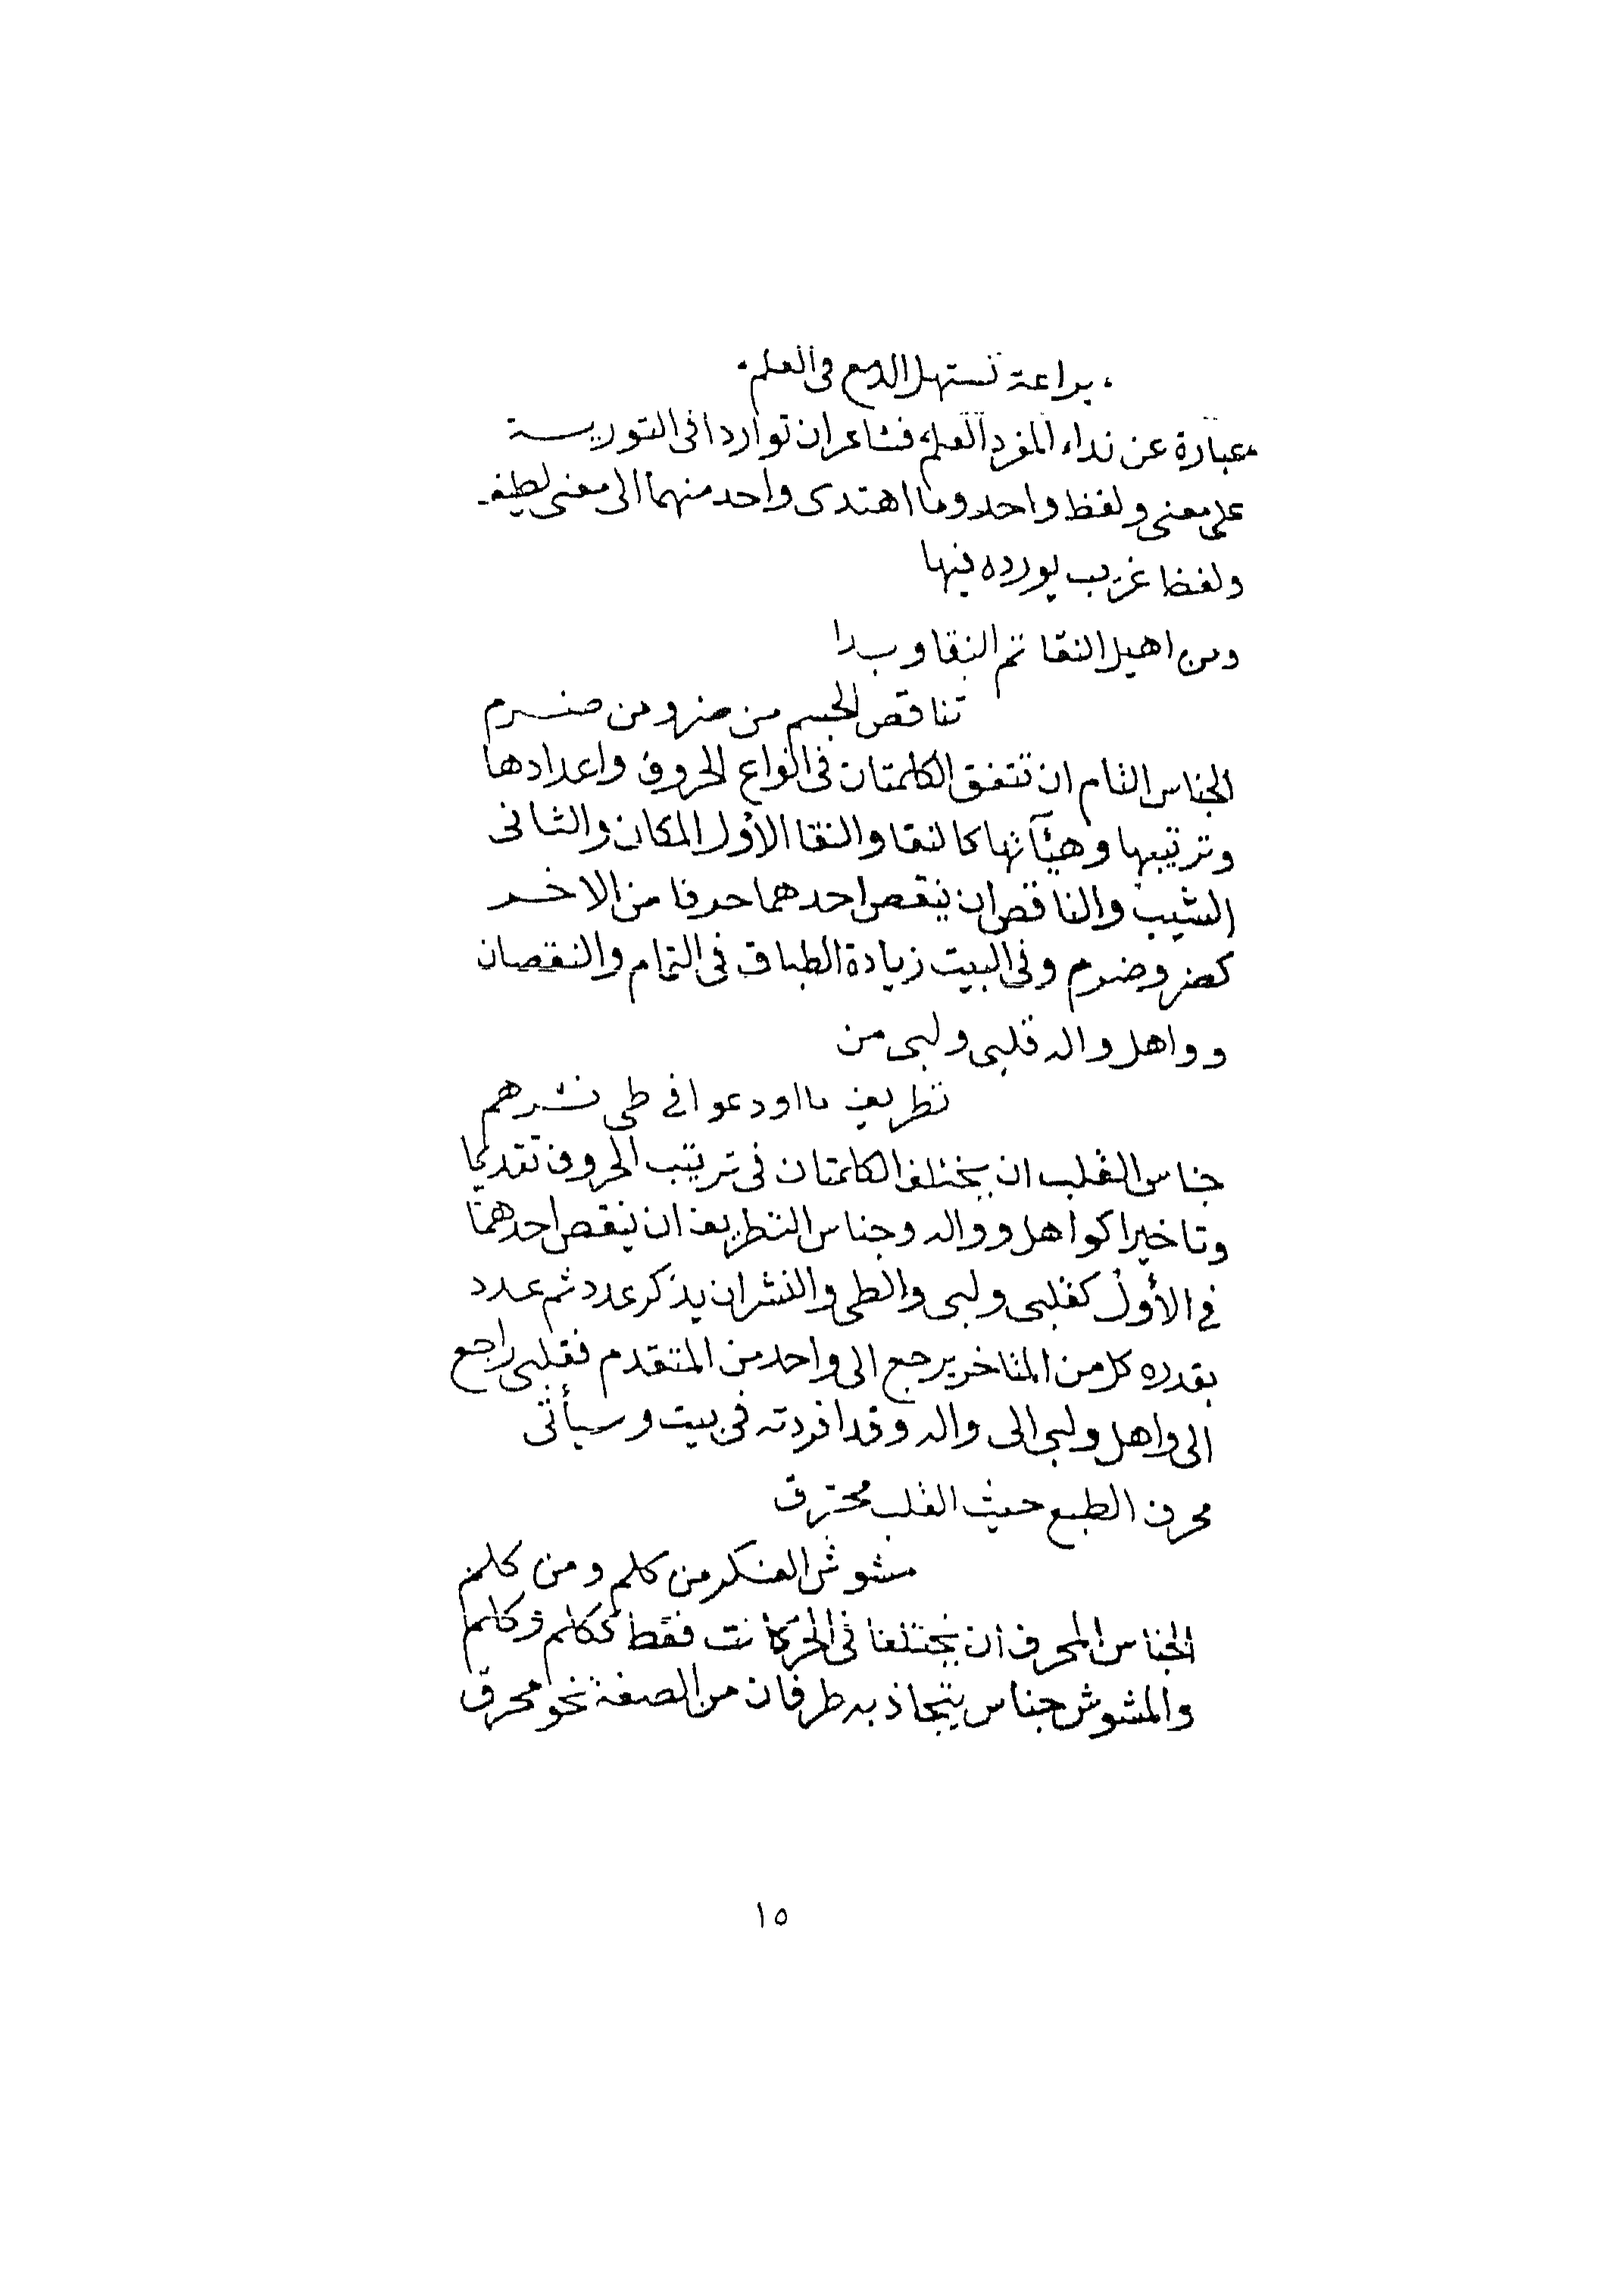 ، براعة تستهل الدمع فى العلم ،
عبارة عن نداء المفرد العلم فشاعران تواردا فى التورية
على معنى ولفظ واحد وما اهتدى واحد منهما الى معنى لطيف
ولفظا غريب يورده فيها
ومن اهيل النقا تم النقا وبدا
تناقص الجسم من ضر ومن ضرم
الجناس التام ان تتفق الكلمتان فى انواع الحروف واعدادها
وترتيبها وهيآتها كالنقا والنقا الأول المكان والثانى
الشيب والناقص ان ينقص احدهما حرفا من الاخر
كضر وضرم وفى البيت زيادة الطباق فى التمام والنقصان
وواهل واله قلبى ولبى من
تطريف ما اودعوا فى طى نشرهم
جناس القلب ان يختلف الكلمتان فى ترتيب الحروف تقديما
وتاخيرا كواهل وواله وجناس التطريف ان ينقص احدهما
فى الأول كقلبى ولبى والطى والنشر ان يذكر عدد ثم عدد
بقدره كل من المتاخر يرجع الى واحد من المتقدم فقلبى راجع
الى واهل ولبى الى واله وقد افردته فى بيت وسيأتى
محرف الطبع حيث القلب محترق
مشوش الفكر من كلم ومن كلم
الجناس المحرف ان يختلفا فى الحركات فقط ككلم وكلم
والمشوش جناس يتجاذبه طرفان من الصفة نحو محرق
١٥